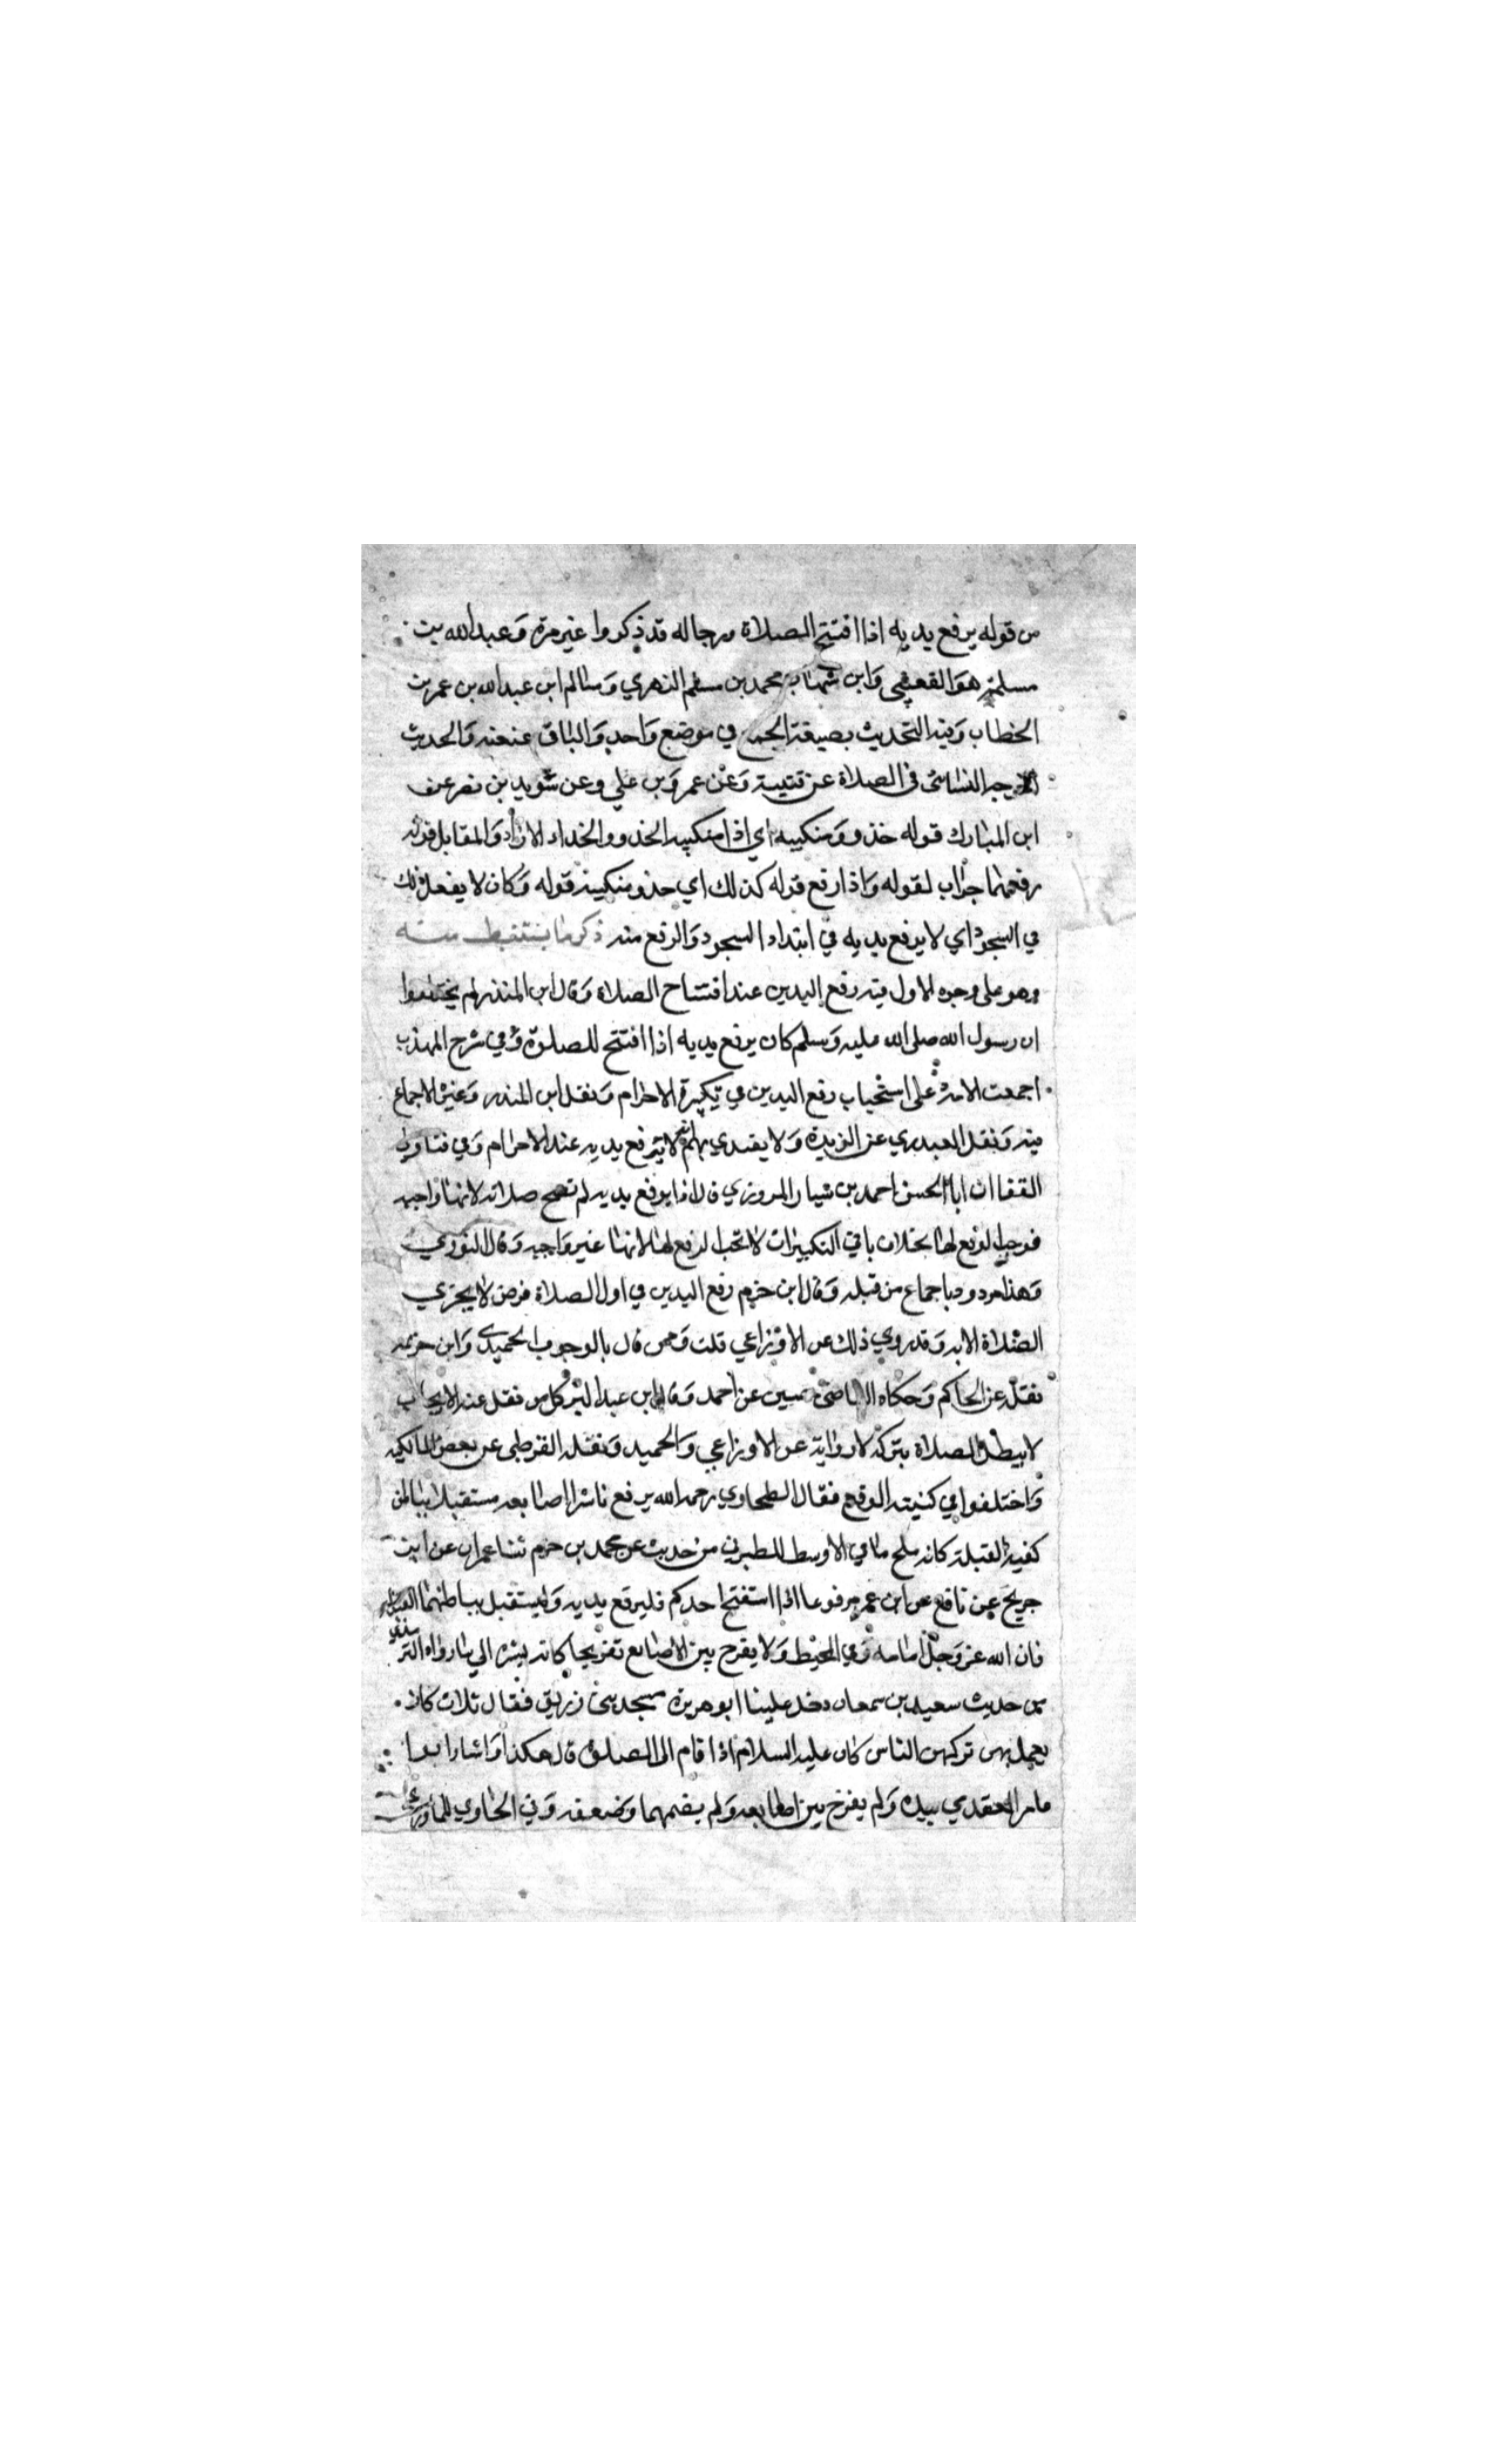 من قوله يرفع يديه اذا افتتح الصلاة ورجاله قد ذكروا غير مرة وعبد الله بن
مسلمة هو القعنبي وابن شهاب محمد بن مسلم الزهري وسالم ابن عبد الله بن عمر بن
الخطاب وفيه التحديث بصيغة الجمع في موضع واحد والباقي عنعنه والحديث
اخرجه النسائي في الصلاة عن قتيبة وعن عمرو بن علي وعن سويد بن نصر عن
ابن المبارك قوله حذو ومنكبيه اي اذا منكبيه الحذو والحذاء الازاء والمقابل قوله
رفعهما جواب لقوله واذا رفع قوله كذلك اي حذو منكبيه قوله وكان لا يفعل ذلك
في السجود اي لا يرفع يديه في ابتداء السجود والرفع منه ذكر ما يستنبط منه
وهو على وجوه الاول فيه رفع اليدين عند افتتاح الصلاة وقال ابن المنذر لم يختلفوا
ان رسول الله صلى الله عليه وسلم كان يرفع يديه اذا افتتح للصلوة وفي شرح المهذب
اجمعت الامة على استحباب رفع اليدين في تكبيرة الاحرام ونقل ابن المنذر وغيره الاجماع
فيه ونقل العبدري عن الزيدية ولا يقتدي بهم انه لا يرفع يديه عند الاحرام وفي فتاوي
القفا ان ابا الحسن احمد بن سيار المروزي قال اذا لم يرفع يديه لم تصح صلاته لانها واجبه
فوجب الرفع لها بخلاف باقي التكبيرات لا تجب الرفع لها لانها غير واجبه وقال النووي
وهذا مردود باجماع من قبله وقال ابن حزم رفع اليدين في اول الصلاة فرض لا يجزي
الصلاة الا به وقد روي ذلك عن الاوزاعي قلت وممن قال بالوجوب الحميدي وابن خزيمه
نقله عن الحاكم وحكاه القاضي حسين عن احمد وقال ابن عبد البر كل من نقل عنه الايجاب
لا يبطل الصلاة بتركه لا رواية عن الاوزاعي والحميد ونقله القرطبي عن بعض المالكيه
واختلفوا في كيفية الرفع فقال الطحاوي رحمه الله يرفع ناشرا اصابعه مستقبلا بباطن
كفيه القبلة كانه ملح ما في الاوسط للطبراني من حديث عن محمد بن حزم ثنا عمران عن ابن
جريج عن نافع عن ابن عمر مرفوعا اذا استفتح احدكم فليرفع يديه وليستقبل بباطنهما القبلة
فان الله عز وجل امامه وفي المحيط ولا يفرج بين الاصابع تفريجا كانه يشير الي ما رواه الترمذي
من حديث سعيد بن سمعان دخل علينا ابو هريرة مسجد بني زريق فقال ثلاث كان
يعمل بهن تركهن الناس كان عليه السلام اذا قام الى الصلوة قال هكذا واشار ابو
عامر العقدي بيده ولم يفرج بين اصابعه ولم يضمهما وضعفه وفي الحاوي للماوردي